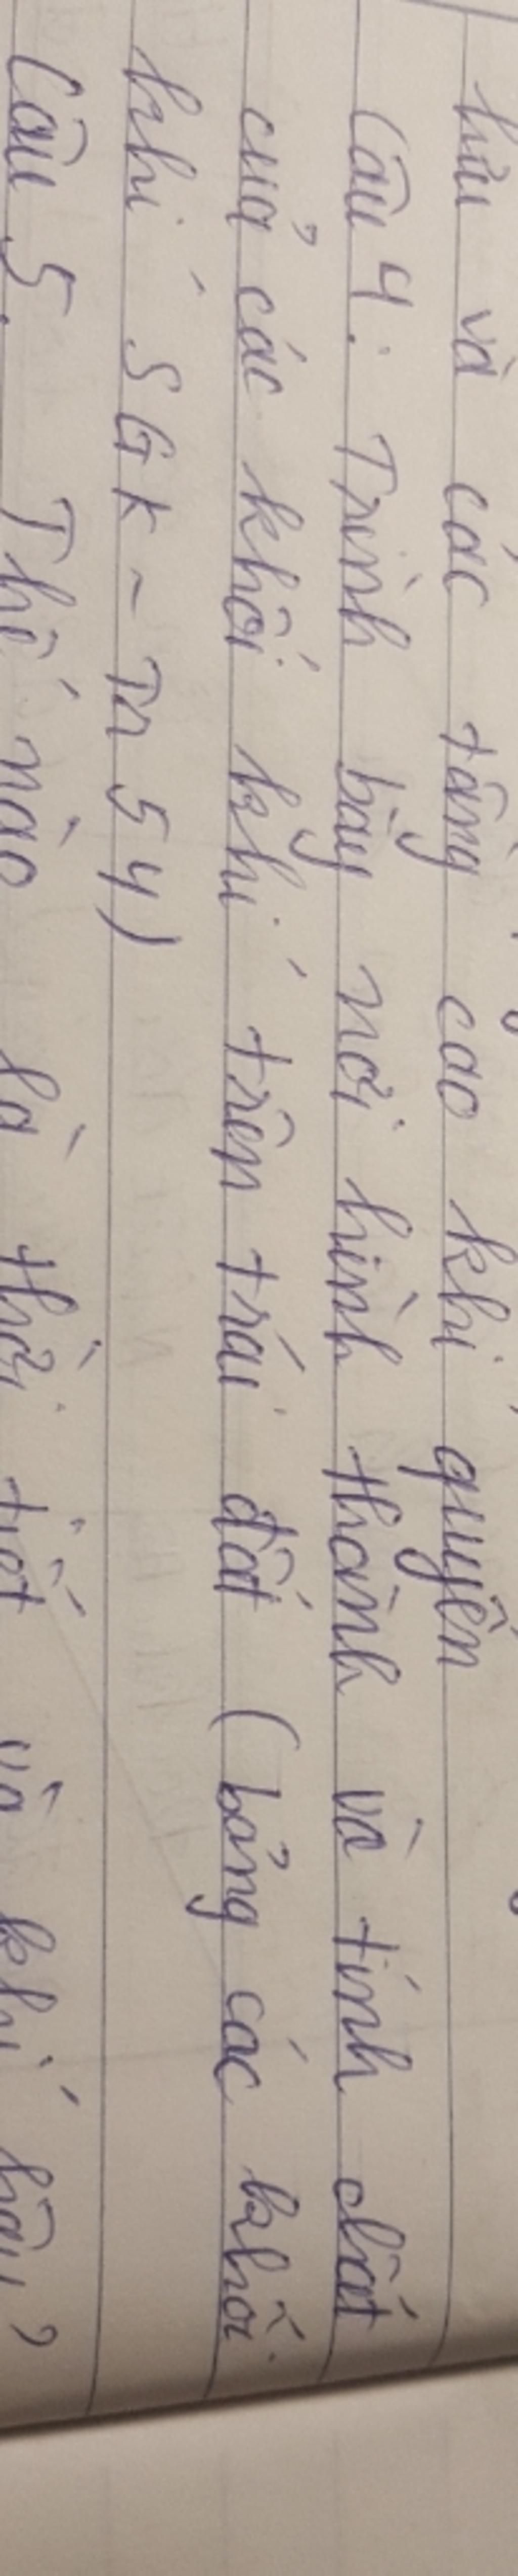 hữu và các tầng cao khí quyển
Câu 4: Trình bày nơi hình thành và tính chất
của các khối khí trên trái đất (bảng các khối
khí SGK - Tr 54)
Câu 5. Thế nào là thời tiết và khí hậu?